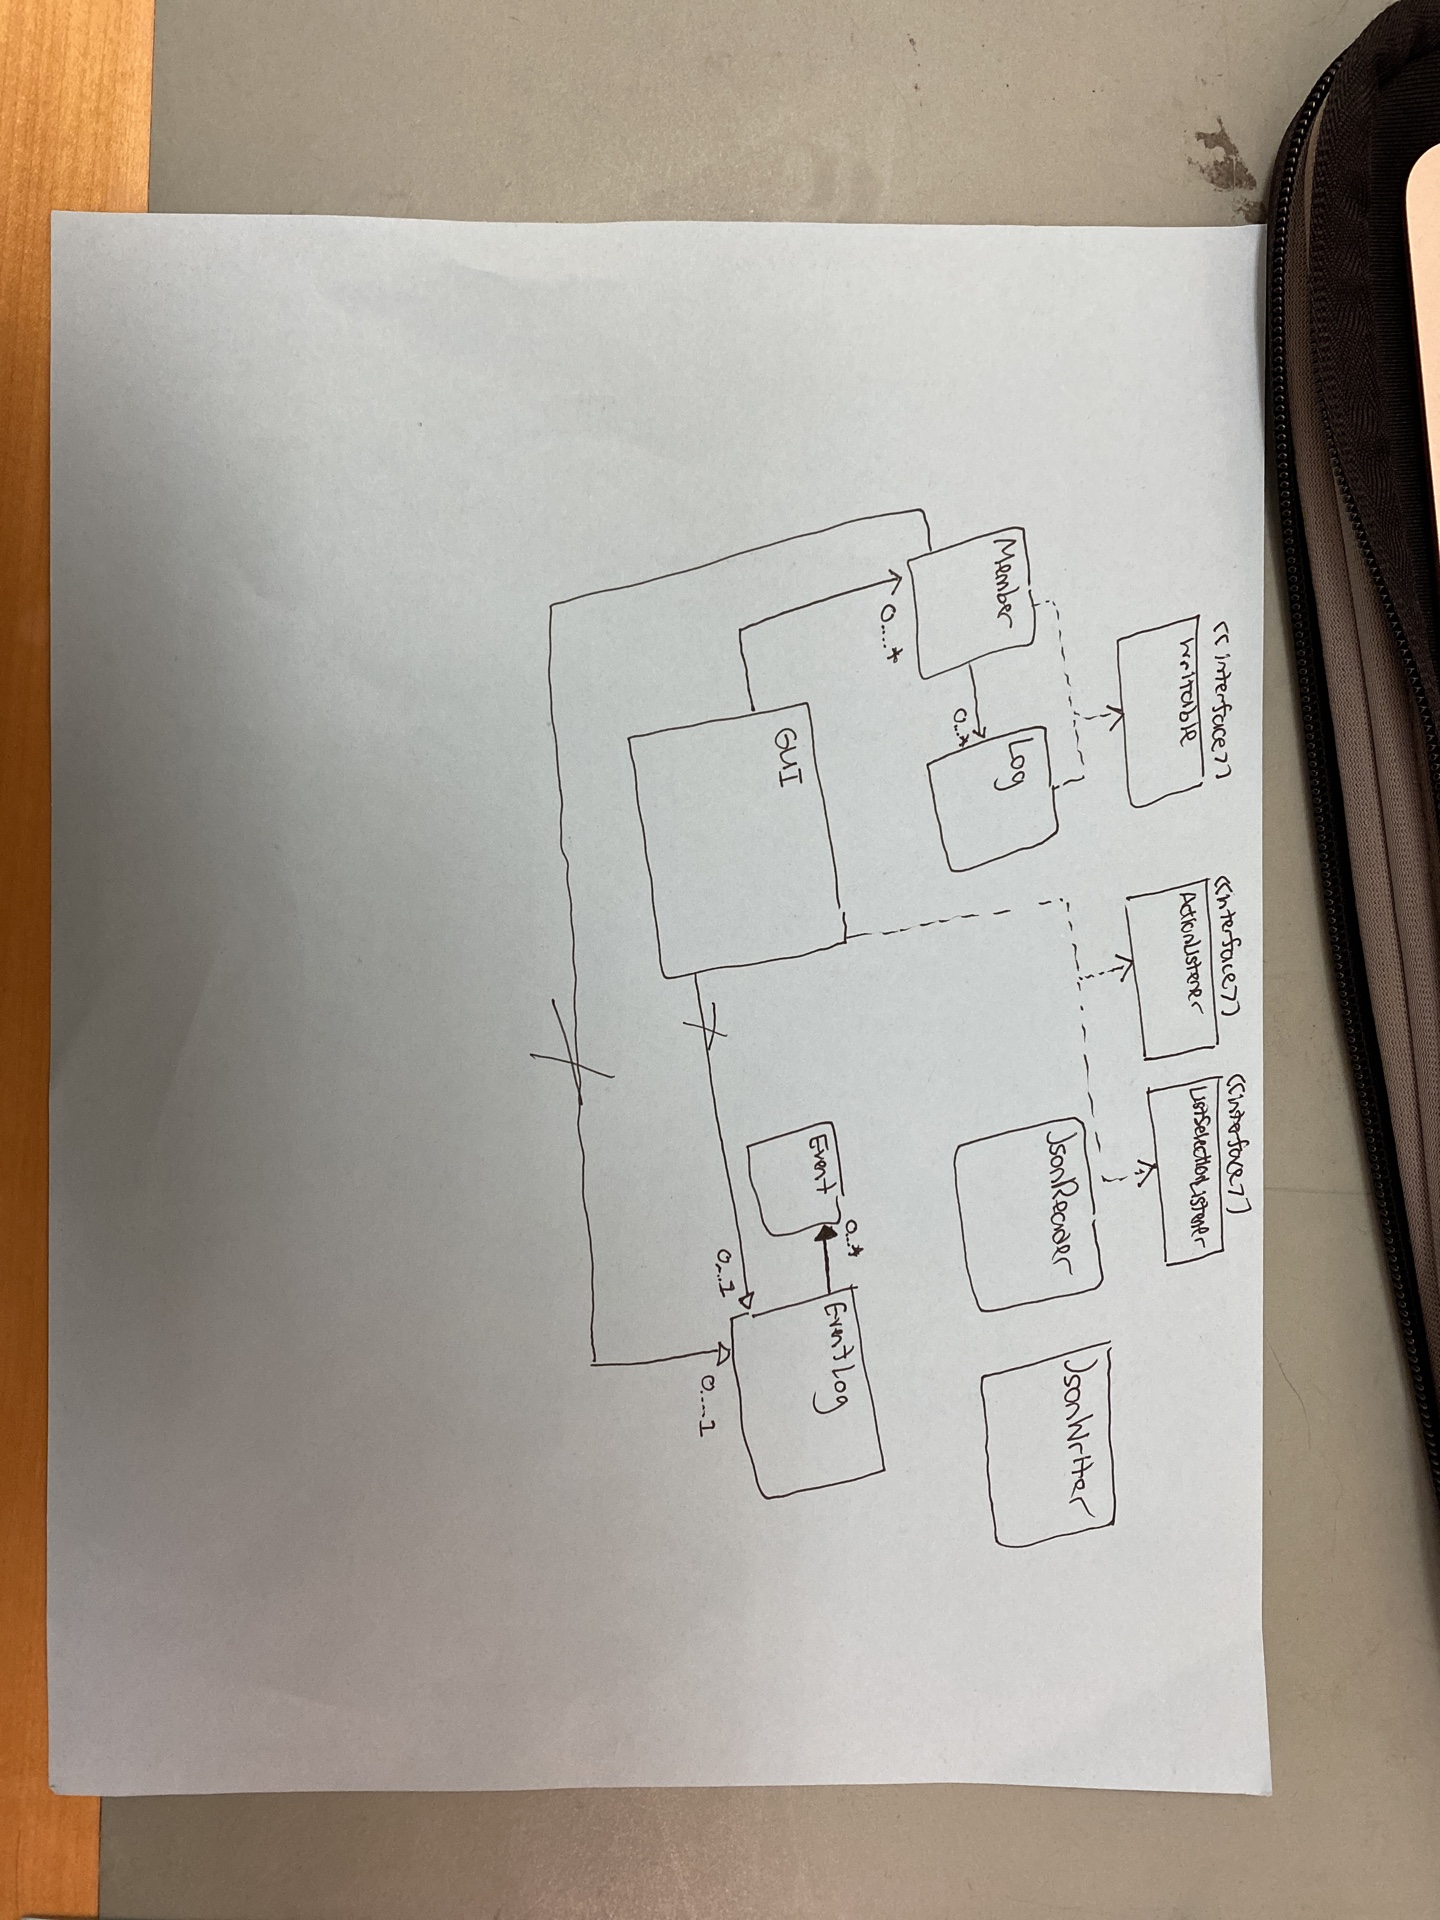 <<interface>>
Writable
<<interface>>
ActionListener
<<interface>>
ListSelectionListener
Member
0....*
0...*
Log
JsonReader
JsonWriter
GUI
Event
0...*
EventLog
0...1
0....1